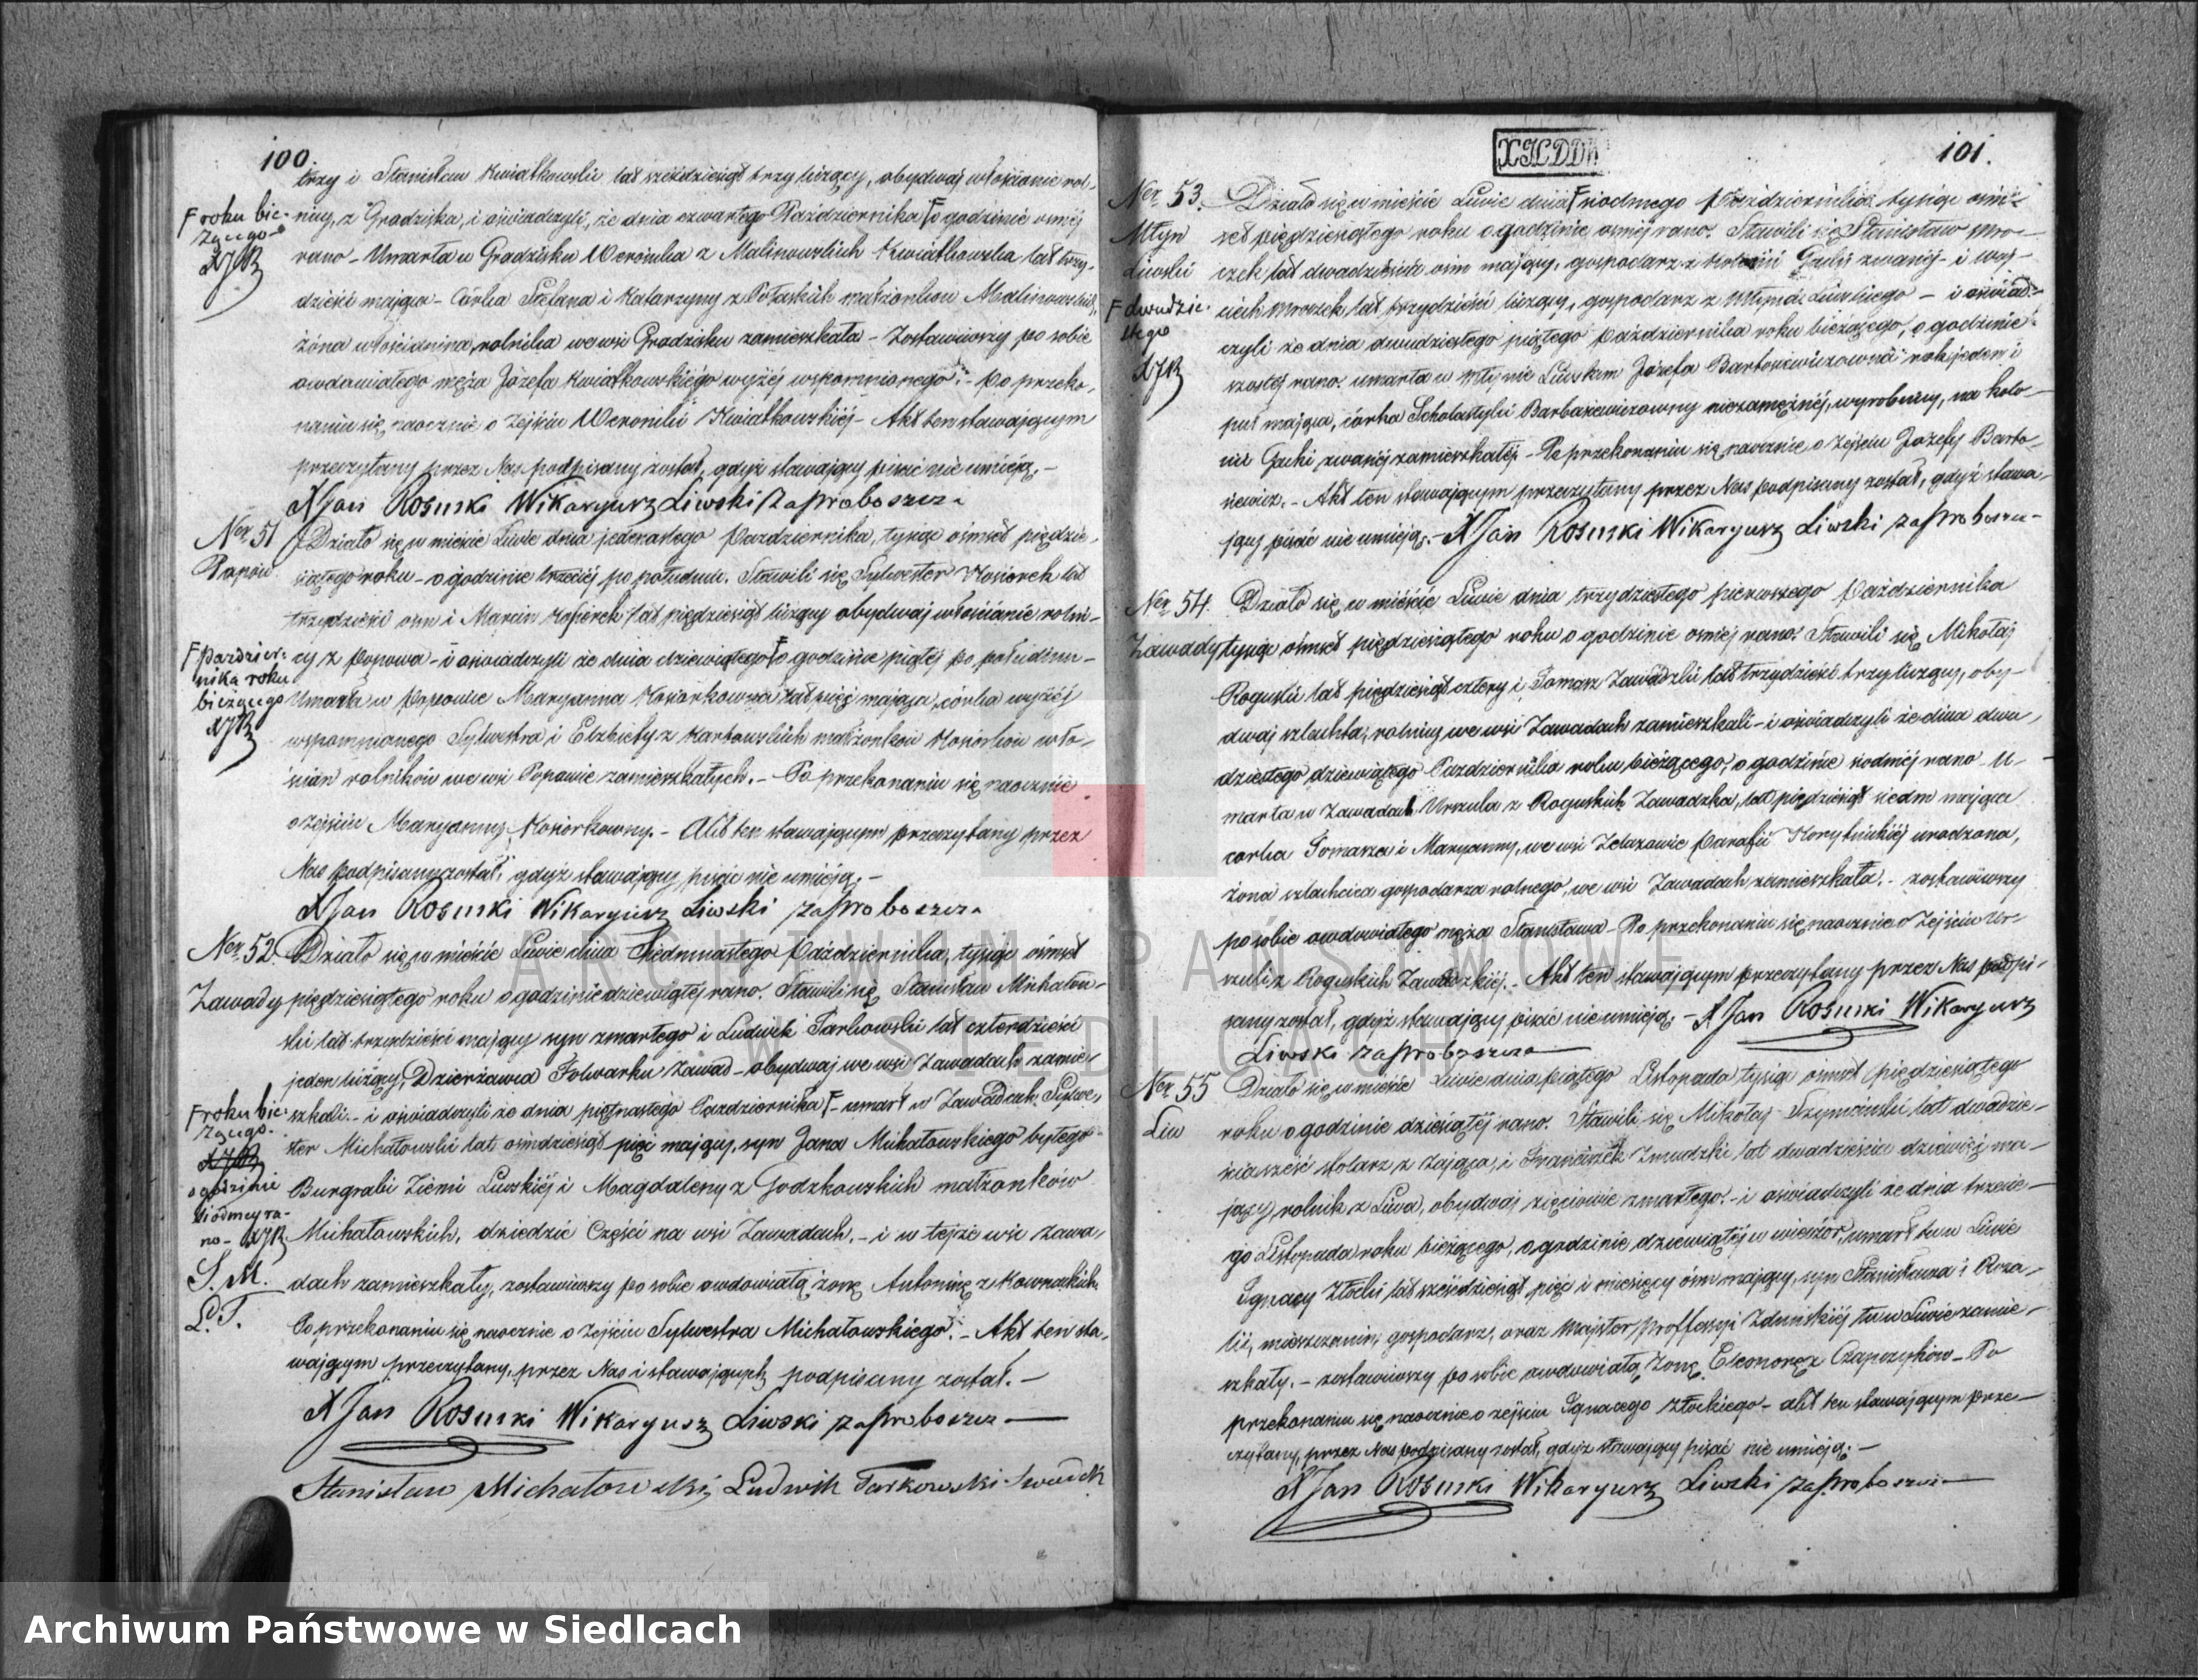 100.
trzy i Stanisław Kwiatkowski lat sześćdziesiąt trzy liczący, obydwaj włościanie rol-
nicy, z Grodziska, i oświadczyli, że dnia czwartego Października F o godzinie ósmej
F roku bie-
żącego
XJR
rano - Umarła w Grodzisku Weronika z Malinowskich Kwiatkowska lat trzy-
dzieści mająca - Córka Stefana i Katarzyny z małżonków Malinowskich,
żona włościanina, rolnika we wsi Grodzisku zamieszkała - Zostawiwszy po sobie
owdowiałego męża Józefa Kwiatkowskiego wyżej wspomnionego. - Po przeko-
naniu się naocznie o zejściu Weroniki Kwiatkowskiej - Akt ten stawającym
przeczytany przez Nas podpisany został, gdyż stawający pisać nie umieją. -
XJan Rosinski Wikaryusz Liwski za proboszcza
Ner 51
Popów
Działo się w mieście Liwie dnia jedenastego Października, tysiąc ośmset pięćdzie-
siątego roku - o godzinie trzeciej po południu. Stawili się Sylwester Kosiorek lat
trzydzieści osm i Marcin Kosiorek lat pięćdziesiąt liczący obydwaj włościanie rolni-
cy z Popowa - i oświadczyli że dnia dziewiątego F o godzinie piątej po południu -
F paździer-
nika roku
bieżącego
XJR
Umarła w Popowie Maryanna Kosiorkowna lat pięć mająca, córka wyżej
wspomnianego Sylwestra, i Elżbiety z Karkowskich małżonków Kosiorków wło-
ścian rolników we wsi Popowie zamieszkałych. - Po przekonaniu się naocznie
o zejściu Maryanny Kosiorkowny. - Akt ten stawającym przeczytany przez
Nas podpisany został, gdyż stawający pisać nie umieją. -
XJan Rosinski Wikaryusz Liwski za proboszcza
Ner 52
Zawady
Działo się w mieście Liwie dnia Siedmnastego Października, tysiąc ośmset
pięćdziesiątego roku o godzinie dziewiątej rano. Stawili się Stanisław Michałow-
ski lat trzydzieści mający syn zmarłego i Ludwik Tarkowski lat czterdzieści
jeden liczący, Dzierżawca Folwarku Zawad - obydwaj we wsi Zawadach zamie-
szkali. - i oświadczyli że dnia piętnastego Października F - umarł w Zawadach Sylwe-
F roku bie-
żącego
XJR
o godzinie
siódmey ra-
no - XJR
S. M.
L. T.
ster Michałowski lat ośmdziesiąt pięć mający, syn Jana Michałowskiego byłego
Burgrabi Ziemi Liwskiej i Magdaleny z Godzkowskich małżonków
Michałowskich, dziedzic Części na wsi Zawadach, - i w tejże wsi Zawa-
dach zamieszkały, zostawiwszy po sobie owdowiałą żonę Antoninę z Kownackich
Po przekonaniu się naocznie o zejściu Sylwestra Michałowskiego. - Akt ten sta-
wającym przeczytany, przez Nas i stawających podpisany został. -
XJan Rosinski Wikaryusz Liwski za proboszcza
Stanisław Michałowski, Ludwik Tarkowski
101.
Ner 53.
Młyn
Liwski
Działo się w mieście Liwie dnia F siodmego Października tysiąc ośm-
set pięćdziesiątego roku o godzinie osmej rano. Stawili się Stanisław Mro-
czek lat dwadzieścia osm mający, gospodarz z Kolonii Gucki zwanej - i Woj-
F dwudzie-
stego
XJR
ciech Mroczek lat trzydzieści liczący, gospodarz z Młyna Liwskiego - i oświad-
czyli że dnia dwudziestego piątego Października roku bieżącego, o godzinie
szostej rano. umarła w Młynie Liwskim Józefa Bartosiewiczowna rok jeden i
pul mająca, córka Scholastyki Barbasiewiczowny niezamężnej, wyrobnicy, na kolo-
nii Gucki zwanej zamieszkałej - Po przekonaniu się naocznie o zejściu Józefy Barto-
siewicz. - Akt ten stawającym przeczytany przez Nas podpisany został, gdyż stawa-
jący pisać nie umieją. - XJan Rosinski Wikaryusz Liwski za proboszcza -
Ner 54.
Zawady
Działo się w mieście Liwie dnia trzydziestego pierwszego Października
tysiąc ośmset pięćdziesiątego roku o godzinie osmej rano. Stawili się Mikołaj
Roguski lat pięćdziesiąt cztery i Tomasz Zawadzki lat trzydzieści trzy liczący, oby-
dwaj szlachta, rolnicy we wsi Zawadach zamieszkali - i oświadczyli że dnia dwu-
dziestego dziewiątego Października roku bieżącego, o godzinie siodmej rano U-
marła w Zawadach Urszula z Roguskich Zawadzka, lat pięćdziesiąt siedm mająca
corka Tomasza i Maryanny, we wsi Żelazowie Parafii Korytnickiej urodzona,
żona szlachcica gospodarza rolnego, we wsi Zawadach zamieszkała. - zostawiwszy
po sobie owdowiałego męża Stanisława - Po przekonaniu się naocznie o zejściu Ur-
szuli z Roguskich Zawadzkiej. - Akt ten stawającym przeczytany przez Nas podpi-
sany został, gdyż stawający pisać nie umieją. - XJan Rosinski Wikaryusz
Liwski za proboszcza
Ner 55
Liw
Działo się w mieście Liwie dnia piątego Listopada tysiąc ośmset pięćdziesiątego
roku o godzinie dziesiątej rano. Stawili się Mikołaj Szymański lat dwadzie-
ścia sześć stolarz z Zająca, i Franciszek Zmudzki lat dwadzieścia dziewięć ma-
jący, rolnik z Liwa, obydwaj zięciowie zmarłego. - i oświadczyli że dnia trzecie-
go Listopada roku bieżącego, o godzinie dziewiątej w wieczór, umarł tu w Liwie
Ignacy Złocki lat sześćdziesiąt pięć i miesięcy ósm mający, syn Stanisława i Roza-
lii, mieszczanin, gospodarz, oraz Majster proffessji Zduńskiej tu w Liwie zamie-
szkały. - zostawiwszy po sobie owdowiałą żonę Eleonorę z Czapczyków - Po
przekonaniu się naocznie o zejściu Ignacego Złockiego - akt ten stawającym prze-
czytany, przez Nas podpisany został, gdyż stawający pisać nie umieją. -
XJan Rosinski Wikaryusz Liwski za proboszcza
ARCHIWUM PAŃSTWOWE
W SIEDLCACH
Archiwum Państwowe w Siedlcach